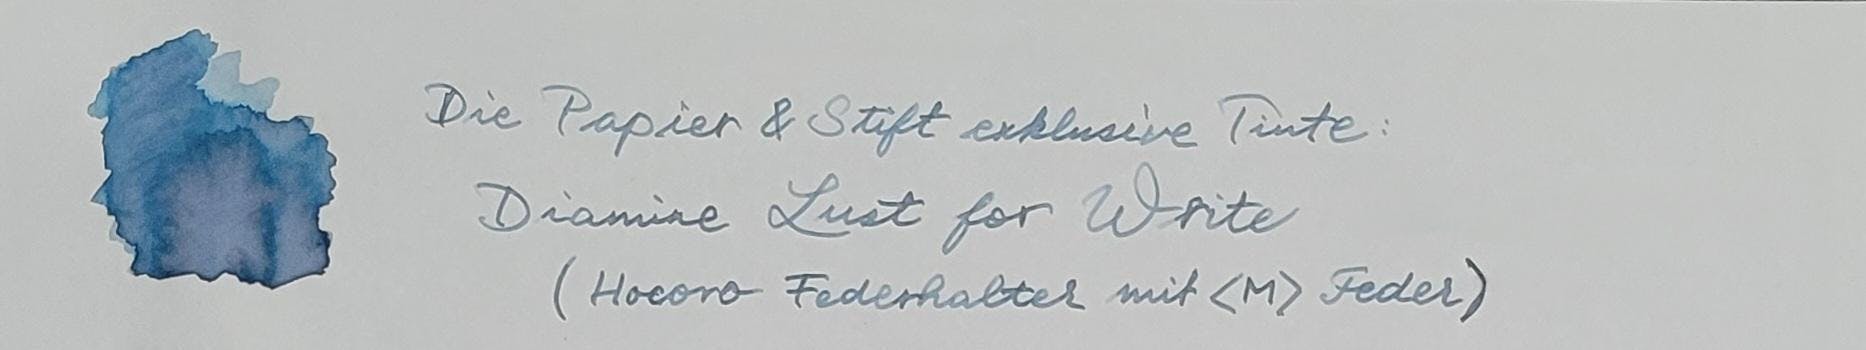 Die Papier & Stift exklusive Tinte:
Diamine Lust for Write
(Hocoro Federhalter mit <M> Feder)